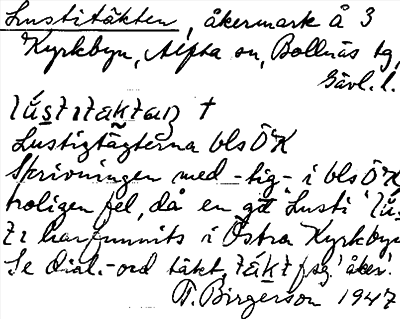 Lustitäkten, åkermark å 3
Kyrkbyn, Alfta sn, Bollnäs tg,
Gävl. l.
Lustigtägterna bls ÖK
Skrivningen med -tig- i bls ÖK
troligen fel, då en gd Lusti
har funnits i Östra Kyrkbyn
Se dial.-ord täkt, fsg 'åker'.
T. Birgerson 1947